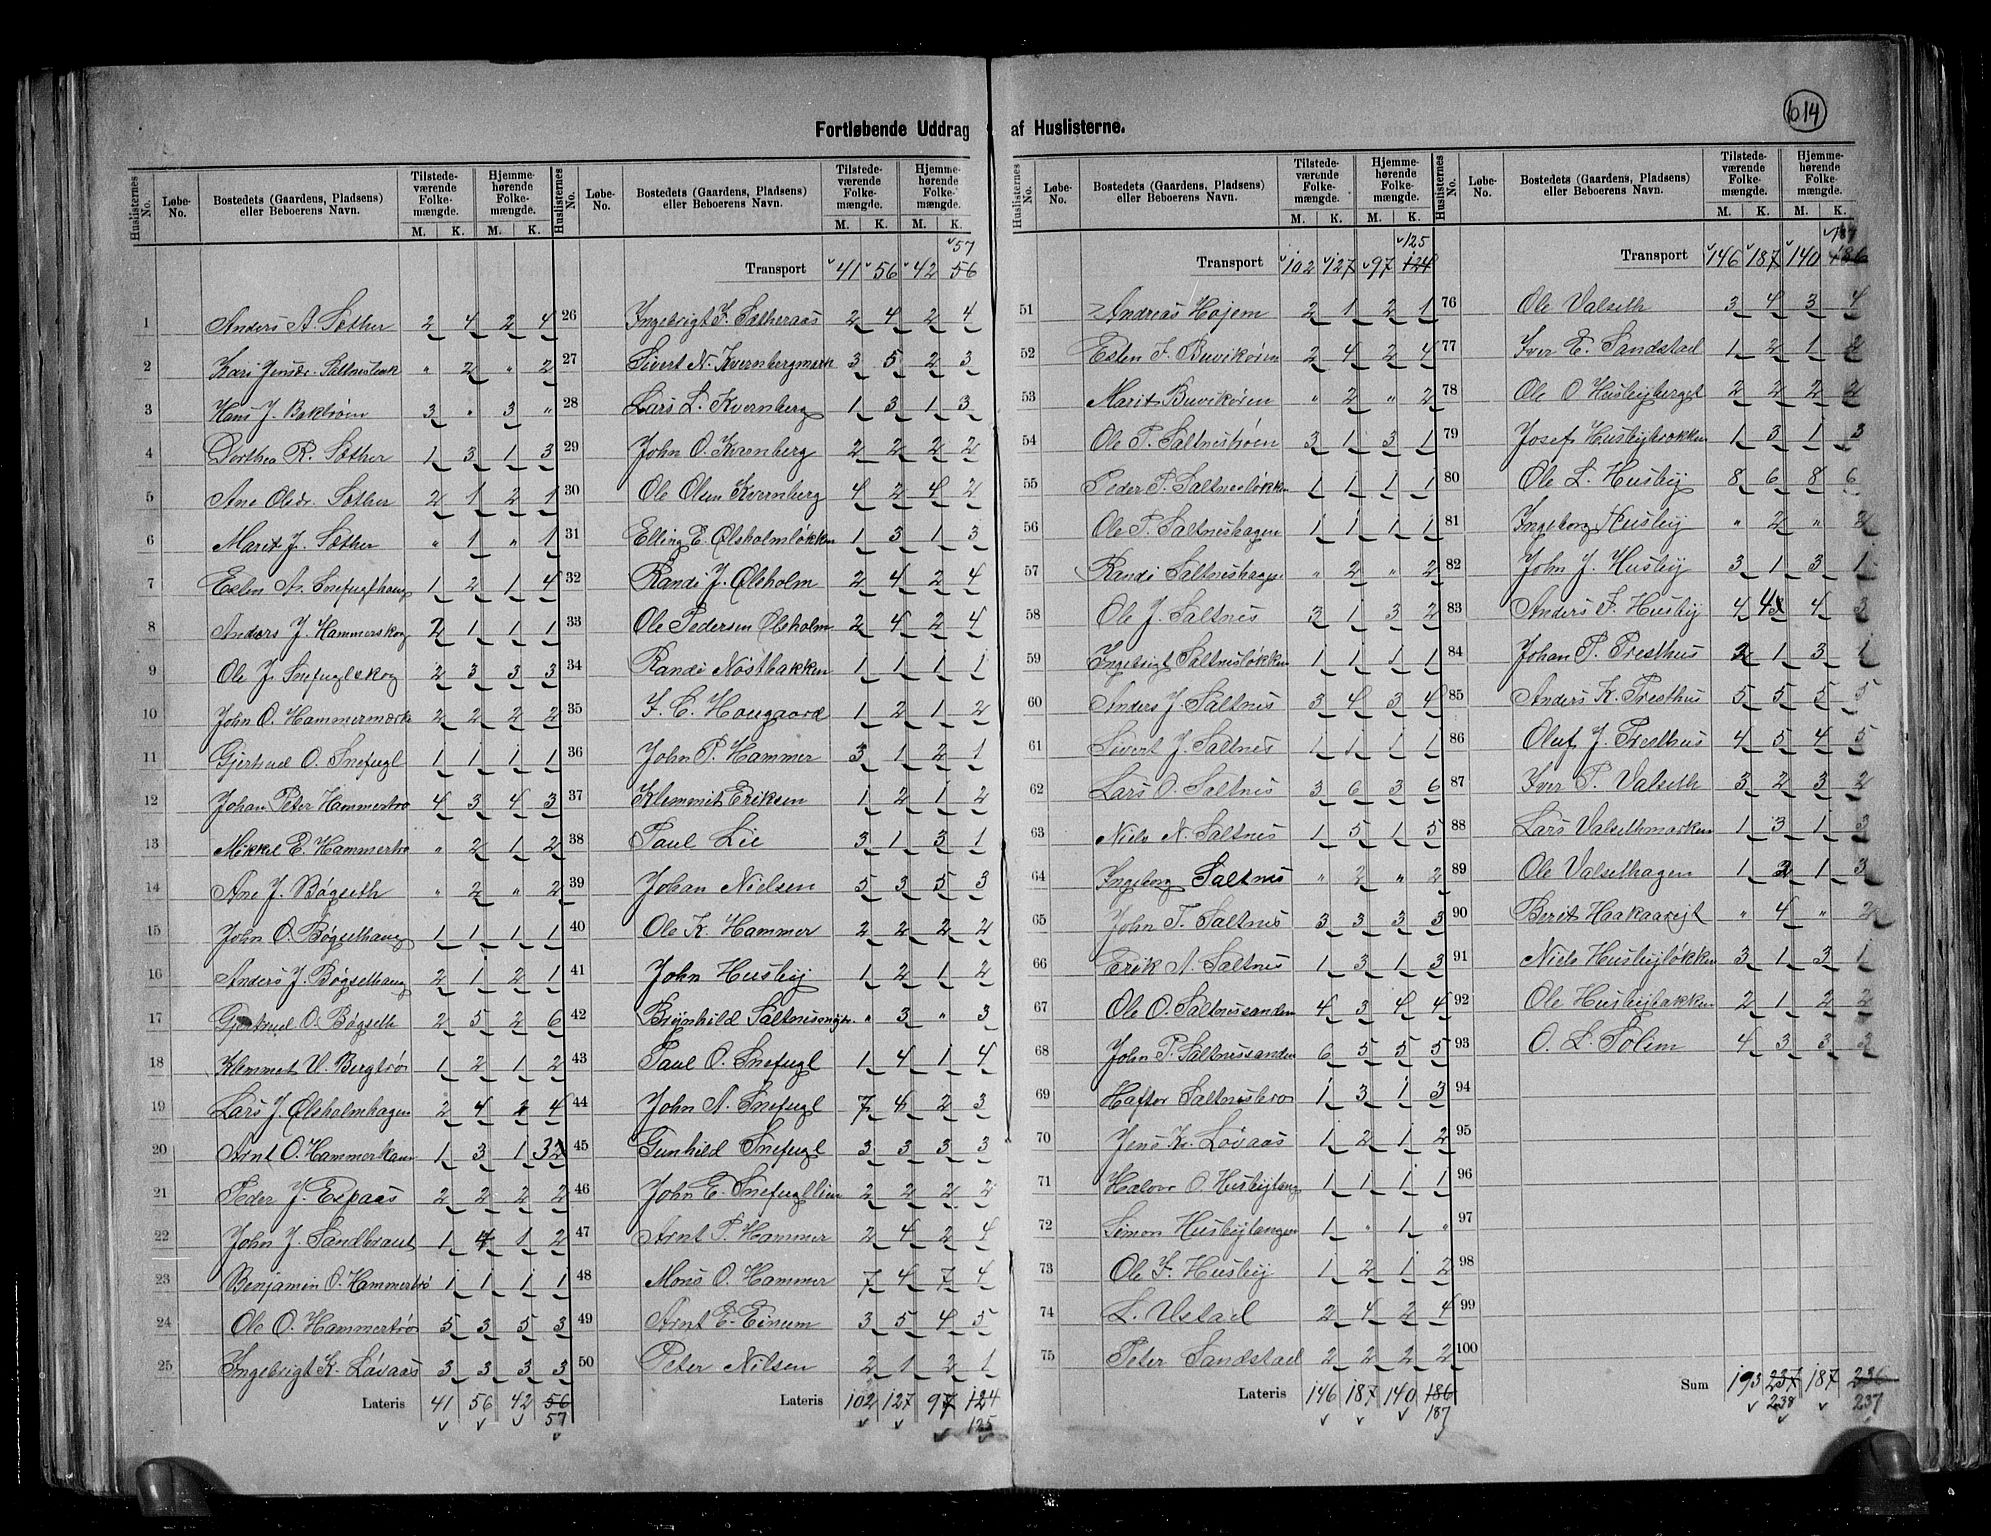 1014
Fortløbende Uddrag af Huslisterne.
Huslisternes No. Løbe-No. Bostedets (Gaardens, Pladsens) eller Beboerens Navn. Tilstedeværende Folkemængde. M. K. Hjemmehørende Folkemængde. M. K.
1 Anders A. Sæther 2 4 2 4
2 Kari Jensdr. " 2 " 2
3 Hans J. Bakbrøen 3 " 3 "
4 Dorthea R. Sæther 1 3 1 3
5 Ane Olsdr. Sæther 2 1 2 1
6 Marit J. Sæther " 1 " 1
7 Eslen A. Snefuglhaug 1 2 1 4
8 Anders J. Hammerskog 2 1 1 1
9 Ole J. Snefuglskog 2 3 3 3
10 John O. Hammermærke 2 2 2 2
11 Gjertrud O. Snefugl 1 1 1 1
12 Johan Peter Hammertrø 4 3 4 3
13 Mikkel E. Hammertrø " 2 1 2
14 Ane J. Bøgseth " 2 " 2
15 John O. Bøgsethaug 1 1 1 1
16 Anders J. Bøgsethaug 2 1 2 1
17 Gjertrud O. Bøgseth 2 5 2 6
18 Klemmet U. Bergtrø 1 2 1 2
19 Lars J. Ølsholmhagen 2 4 2 4
20 Arnt O. Hammerkam 1 3 1 3
21 Peder J. Espaas 2 2 2 2
22 John J. Sandbraut 1 4 1 2
23 Benjamin O. Hammertrø 1 1 1 1
24 Ole O. Hammertrø 5 3 5 3
25 Ingebrigt K. Løvaas 3 3 3 3
Lateris 41 56 42 56
57
57
Transport 41 56 42 56
26 Ingebrigt K. Sætheraas 2 4 2 4
27 Sivert N. Kvernbergmark 3 5 2 3
28 Lars L. Kvernberg 1 3 1 3
29 John O. Kvernberg 2 2 2 2
30 Ole Olsen Kvernberg 4 2 4 2
31 Elling E. Ølsholmløkken 1 3 1 3
32 Randi J. Ølsholm 2 4 2 4
33 Ole Pedersen Ølsholm 2 4 2 4
34 Randi Nøstbakken 1 1 1 1
35 F. C. Hougaard 1 2 1 2
36 John P. Hammer 3 1 2 1
37 Klemmit Eriksen 1 2 1 2
38 Paul Lie 3 1 3 1
39 Johan Nielsen 5 3 5 3
40 Ole K. Hammer 2 2 2 2
41 John Husby 1 2 1 2
42 Brynhild " 3 " 3
43 Paul O. Snefugl 1 4 1 4
44 John A. Snefugl 7 4 2 3
45 Gunhild Snefugl 3 3 3 3
46 John E. Snefugllien 2 2 2 2
47 Arnt P. Hammer 2 4 2 4
48 Mons O. Hammer 7 4 7 4
49 Arnt E. Einum 3 5 4 5
50 Peter Nilsen 2 1 2 1
Lateris 102 127 97 124
125
Huslisternes No. Løbe-No. Bostedets (Gaardens, Pladsens) eller Beboerens Navn. Tilstedeværende Folkemængde. M. K. Hjemmehørende Folkemængde. M. K.
125
Transport 102 127 97 124
51 Andreas Højem 2 1 2 1
52 Eslen F. Buvikøren 2 4 2 4
53 Marit Buvikøren " 2 " 2
54 Ole P. Saltnesbrøen 3 1 3 1
55 Peder P. Saltnesløkken 1 1 1 1
56 Ole P. Saltneshagen 1 1 1 1
57 Randi Saltneshagen " 2 " 2
58 Ole J. Saltnes 3 1 3 2
59 Ingebrigt Saltnesløkken 1 1 1 1
60 Anders J. Saltnes 3 4 3 4
61 Sivert J. Saltnes 1 1 1 1
62 Lars O. Saltnes 3 6 3 6
63 Niels N. Saltnes 1 5 1 5
64 Ingeborg Saltnes " 2 " 2
65 John T. Saltnes 3 3 3 3
66 Erik A. Saltnes 1 3 1 3
67 Ole O. Saltnessanden 4 3 4 4
68 John P. Saltnessanden 6 5 5 5
69 Haftor Saltnesbro 1 3 1 3
70 Jens K. Løvaas 1 2 1 2
71 Halvor O. Husbytang 1 1 1 1
72 Simon Husbytangen 1 " 1 "
73 Ole F. Husby 1 2 1 2
74 L. Ustad 2 4 2 4
75 Peter Sandstad 2 2 2 2
Lateris 146 187 140 186
187
187
Transport 146 187 140 186
76 Ole Valseth 3 4 3 4
77 Iver E. Sandstad 1 2 1 2
78 Ole O. Husbyberget 2 2 2 2
79 Josef Husbybrokken 1 3 1 3
80 Ole L. Husby 8 6 8 6
81 Ingeborg Husby " 2 " 2
82 John J. Husby 3 1 3 1
83 Anders F. Husby 4 4 4 3
84 Johan P. Presthus 2 1 3 1
85 Anders K. Presthus 5 5 5 5
86 Oluf J. Presthus 4 5 4 5
87 Iver P. Valseth 3 2 3 2
88 Lars Valsethmarken 1 3 1 3
89 Ole Valsethagen 1 2 1 3
90 Berit " 4 " 2
91 Niels Husbyløkken 3 1 3 1
92 Ole Husbybakken 2 1 2 2
93 O. L. Solem 4 3 3 3
94
95
96
97
98
99
100
Sum 193 237 187 236
238 237